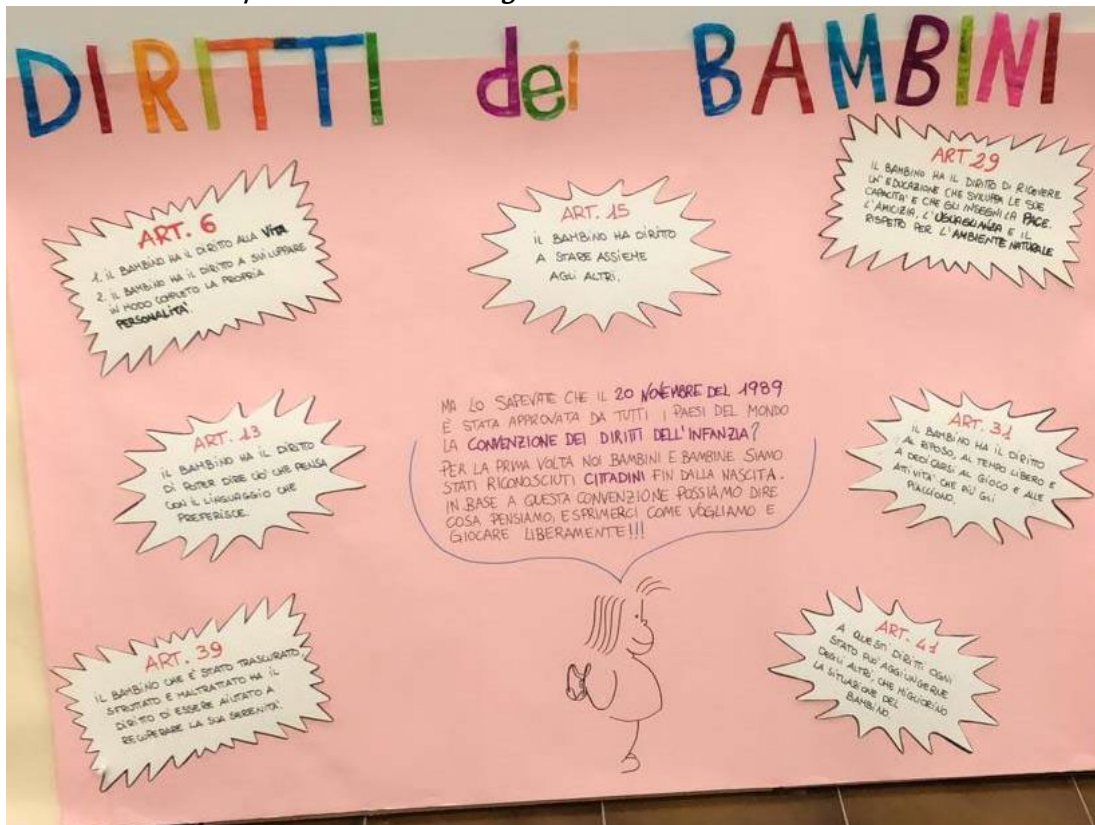 DIRITTI dei BAMBINI
ART. 6
1. IL BAMBINO HA IL DIRITTO ALLA VITA
2. IL BAMBINO HA IL DIRITTO A SVILUPPARE
IN MODO COMPLETO LA PROPRIA
PERSONALITA'.
ART. 15
IL BAMBINO HA DIRITTO
A STARE ASSIEME
AGLI ALTRI.
ART 29
IL BAMBINO HA IL DIRITTO DI RICEVERE
UN'EDUCAZIONE CHE SVILUPPA LE SUE
CAPACITA' E CHE GLI INSEGNI LA PACE.
L'AMICIZIA, L'USUAGLIANZA E IL
RISPETO PER L'AMBIENTE NATURALE
ART. 13
IL BAMBINO HA IL DIRITTO
DI POTER DIRE CIO' CHE PENSA
CON IL LINGUAGGIO CHE
PREFERISCE.
MA LO SAPEVATE CHE IL 20 NOVEMBRE DEL 1989
É STATA APPROVATA DA TUTTI I PAESI DEL MONDO
LA CONVENZIONE DEI DIRITTI DELL'INFANZIA?
PER LA PRIMA VOLTA NOI BAMBINI E BAMBINE SIAMO
STATI RICONOSCIUTI CITTADINI FIN DALLA NASCITA.
IN BASE A QUESTA CONVENZIONE POSSIAMO DIRE
COSA PENSIAMO, ESPRIMERCI COME VOGLIAMO E
GIOCARE LIBERAMENTE!!!
ART. 31
IL BAMBINO HA IL DIRITTO
AL RIPOSO, AL TEMPO LIBERO E
A DEDICARSI AL GIOCO E ALLE
ATTIVITA' CHE PIÙ GLI
PIACCIONO.
ART. 39
IL BAMBINO CHE É STATO TRASCURATO,
SFRUTTATO E MALTRATTATO HA IL
DIRITTO DI ESSERE AIUTATO A
RECUPERARE LA SUA SERENITA'.
ART. 41
A QUESTI DIRITTI OGNI
STATO PUO' AGGIUNGERNE
DEGLI ALTRI, CHE MIGLIORINO
LA SITUAZIONE DEL
BAMBINO.